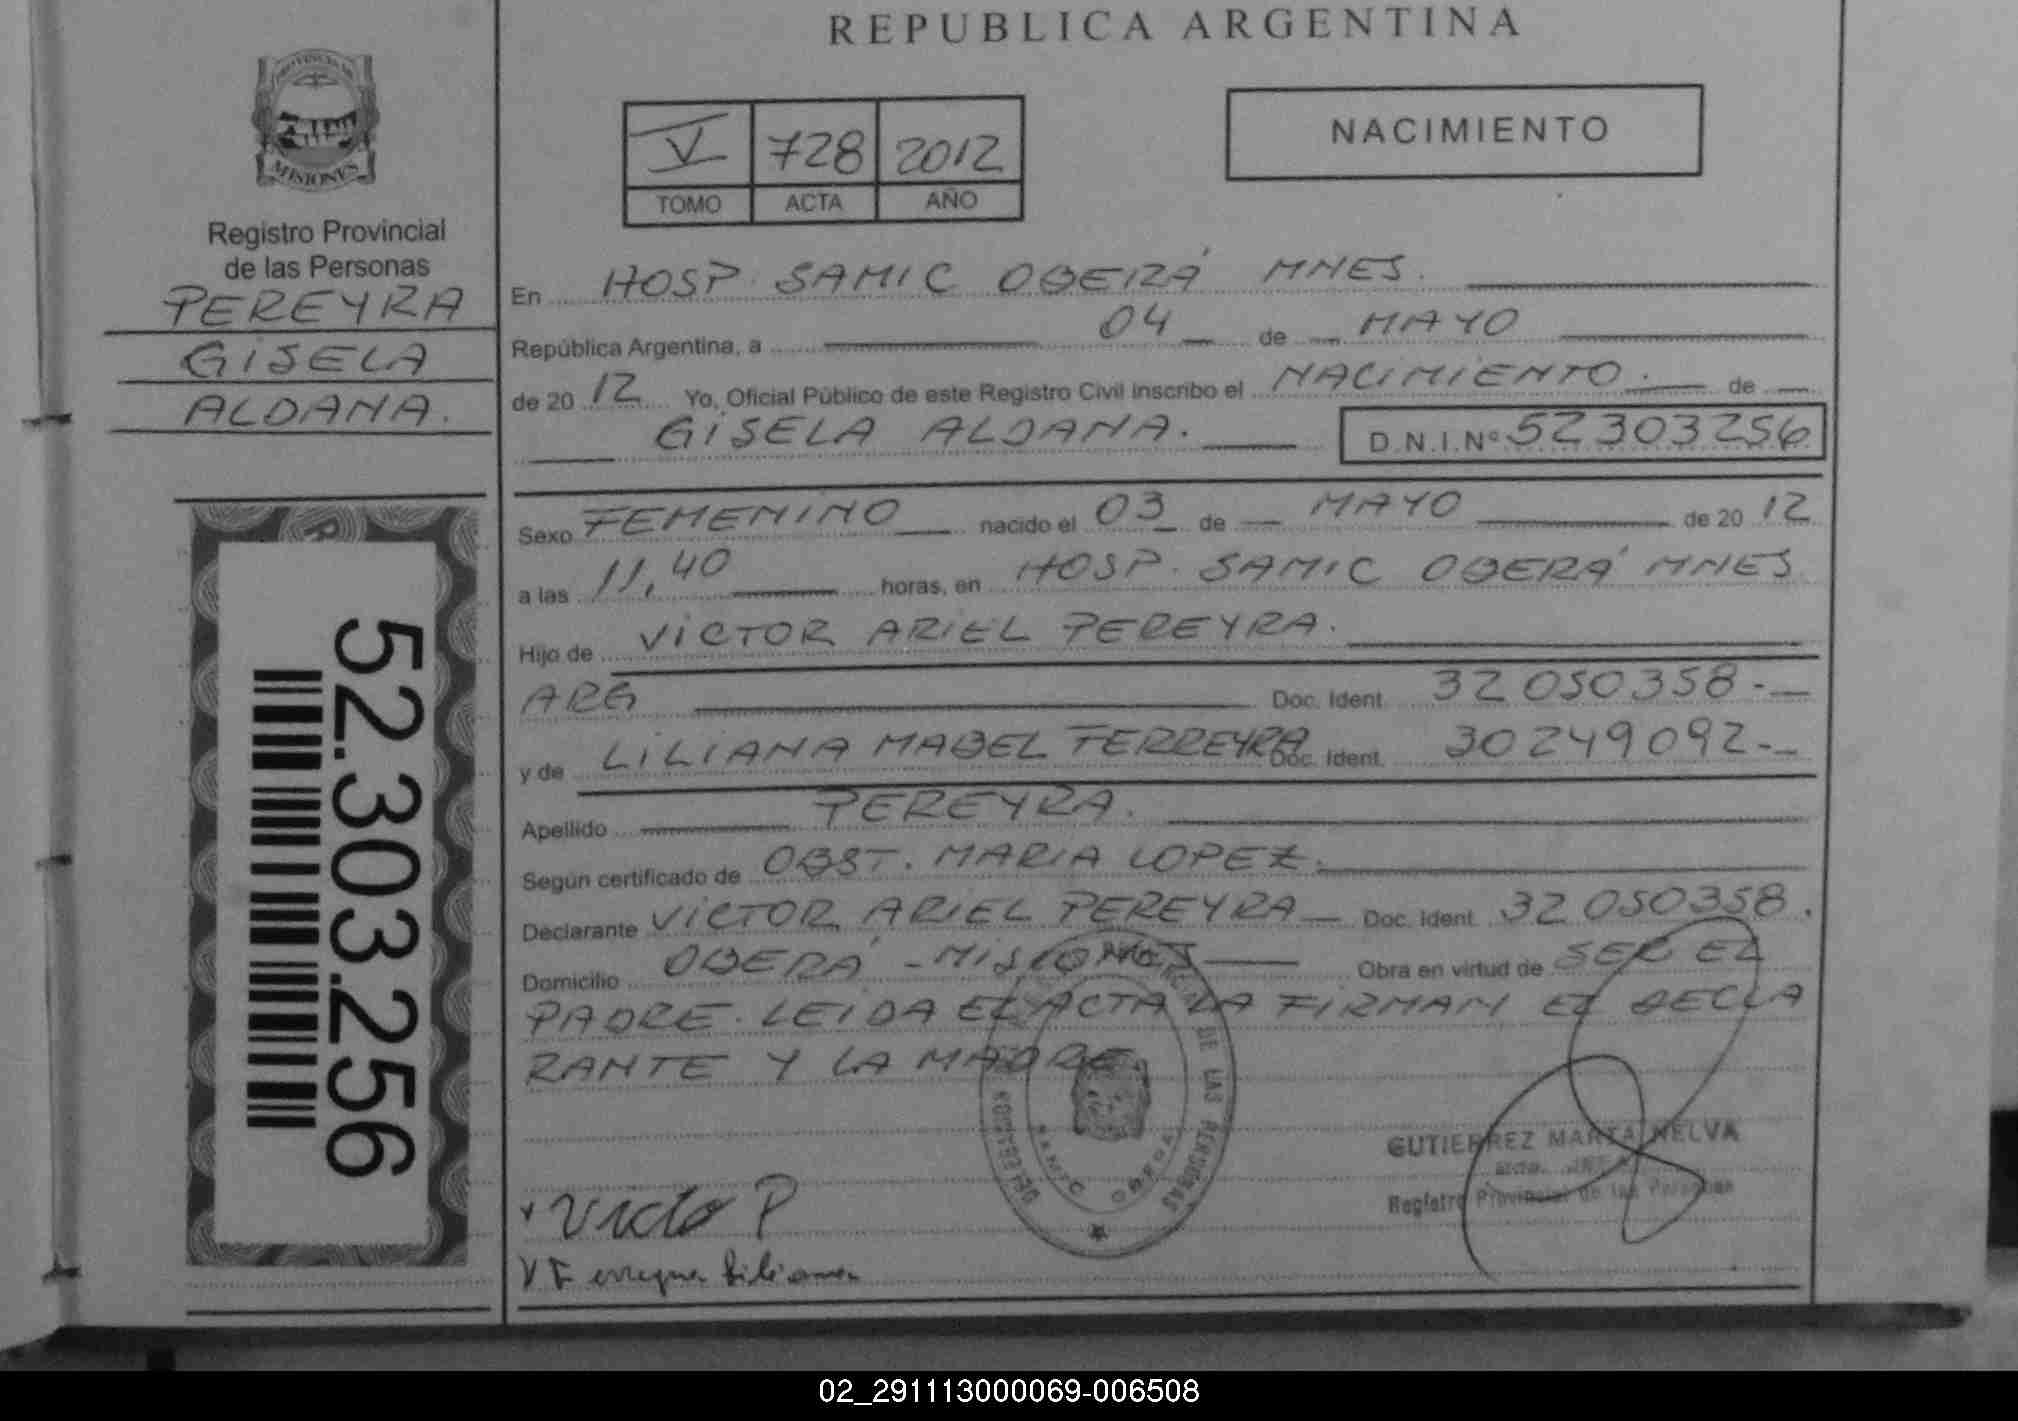 REPUBLICA ARGENTINA
PROVINCIA DE
MISIONES
Registro Provincial
de las Personas
PEREYRA
GISELA
ALDANA.
52.303.256
V 728 2012
TOMO ACTA AÑO
NACIMIENTO
En HOSP. SAMIC OBERÁ MNES.
República Argentina, a 04 de MAYO
de 20 12 Yo, Oficial Público de este Registro Civil inscribo el NACIMIENTO. de
GISELA ALDANA. D.N.I.Nº 52303256
Sexo FEMENINO nacido el 03 de MAYO de 20 12
a las 11,40 horas, en HOSP. SAMIC OBERÁ MNES
Hijo de VICTOR ARIEL PEREYRA.
ARG Doc. Ident. 32050358.-
y de LILIANA MABEL FERREYRA Doc. Ident. 30249092.-
Apellido PEREYRA.
Según certificado de OBST. MARIA LOPEZ.
Declarante VICTOR ARIEL PEREYRA Doc. Ident. 32050358.
Domicilio OBERÁ - MISIONES Obra en virtud de SER EL
PADRE. LEIDA EL ACTA LA FIRMAN EL DECLA
RANTE Y LA MADRE.
DE LAS PERSONAS
GUTIERREZ MARTA NELVA
Registro Provincial de las Personas
Victo P
Ferreyra Liliana
02_291113000069-006508